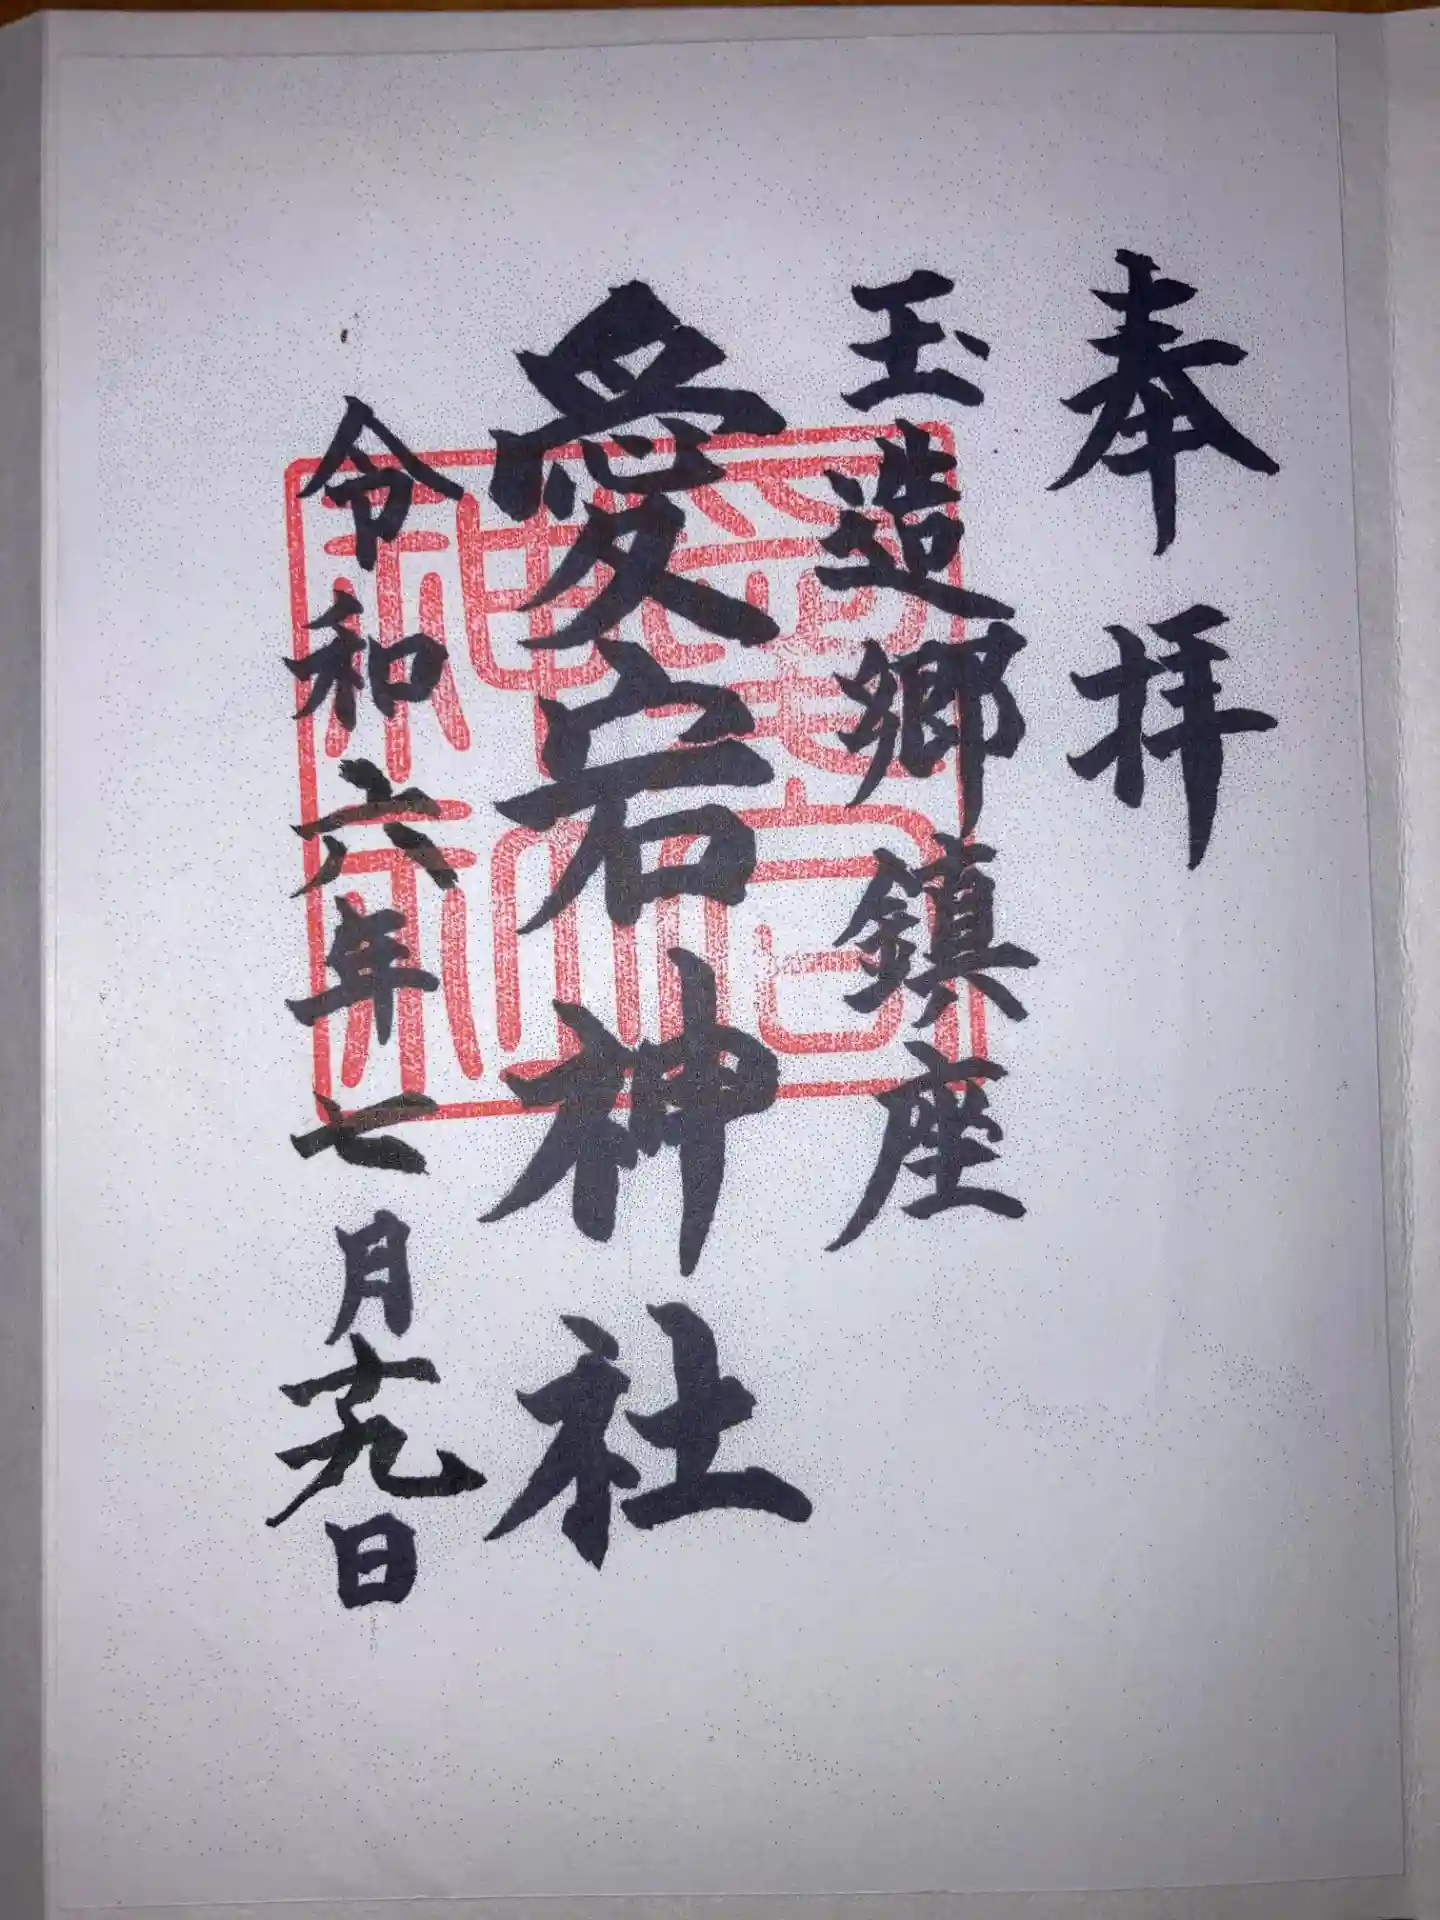 奉拝
玉造郷鎮座
愛宕神社
令和六年七月十九日
愛宕神社